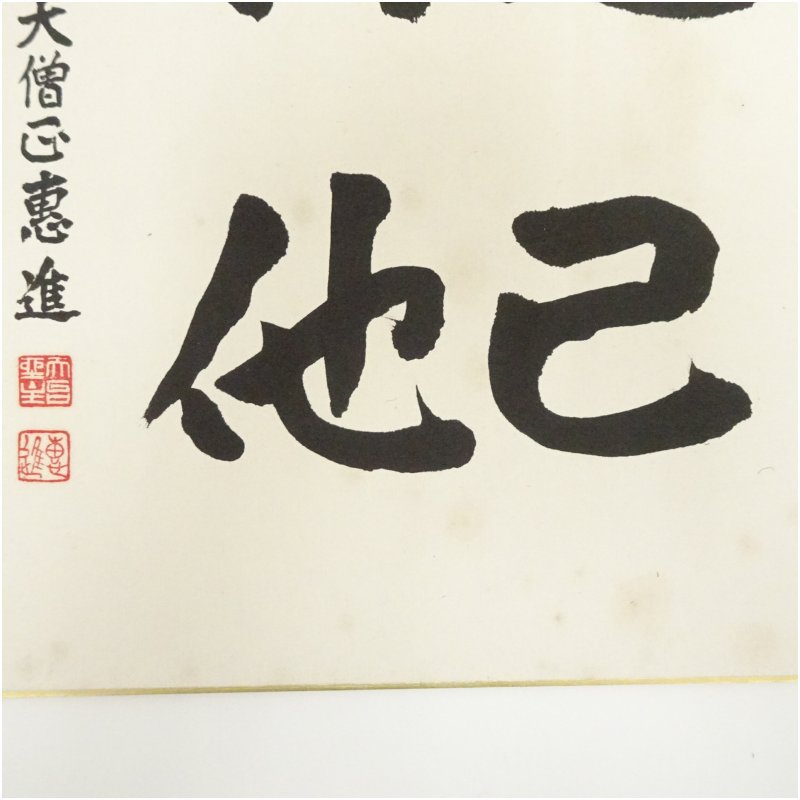 己
他
大僧正惠進